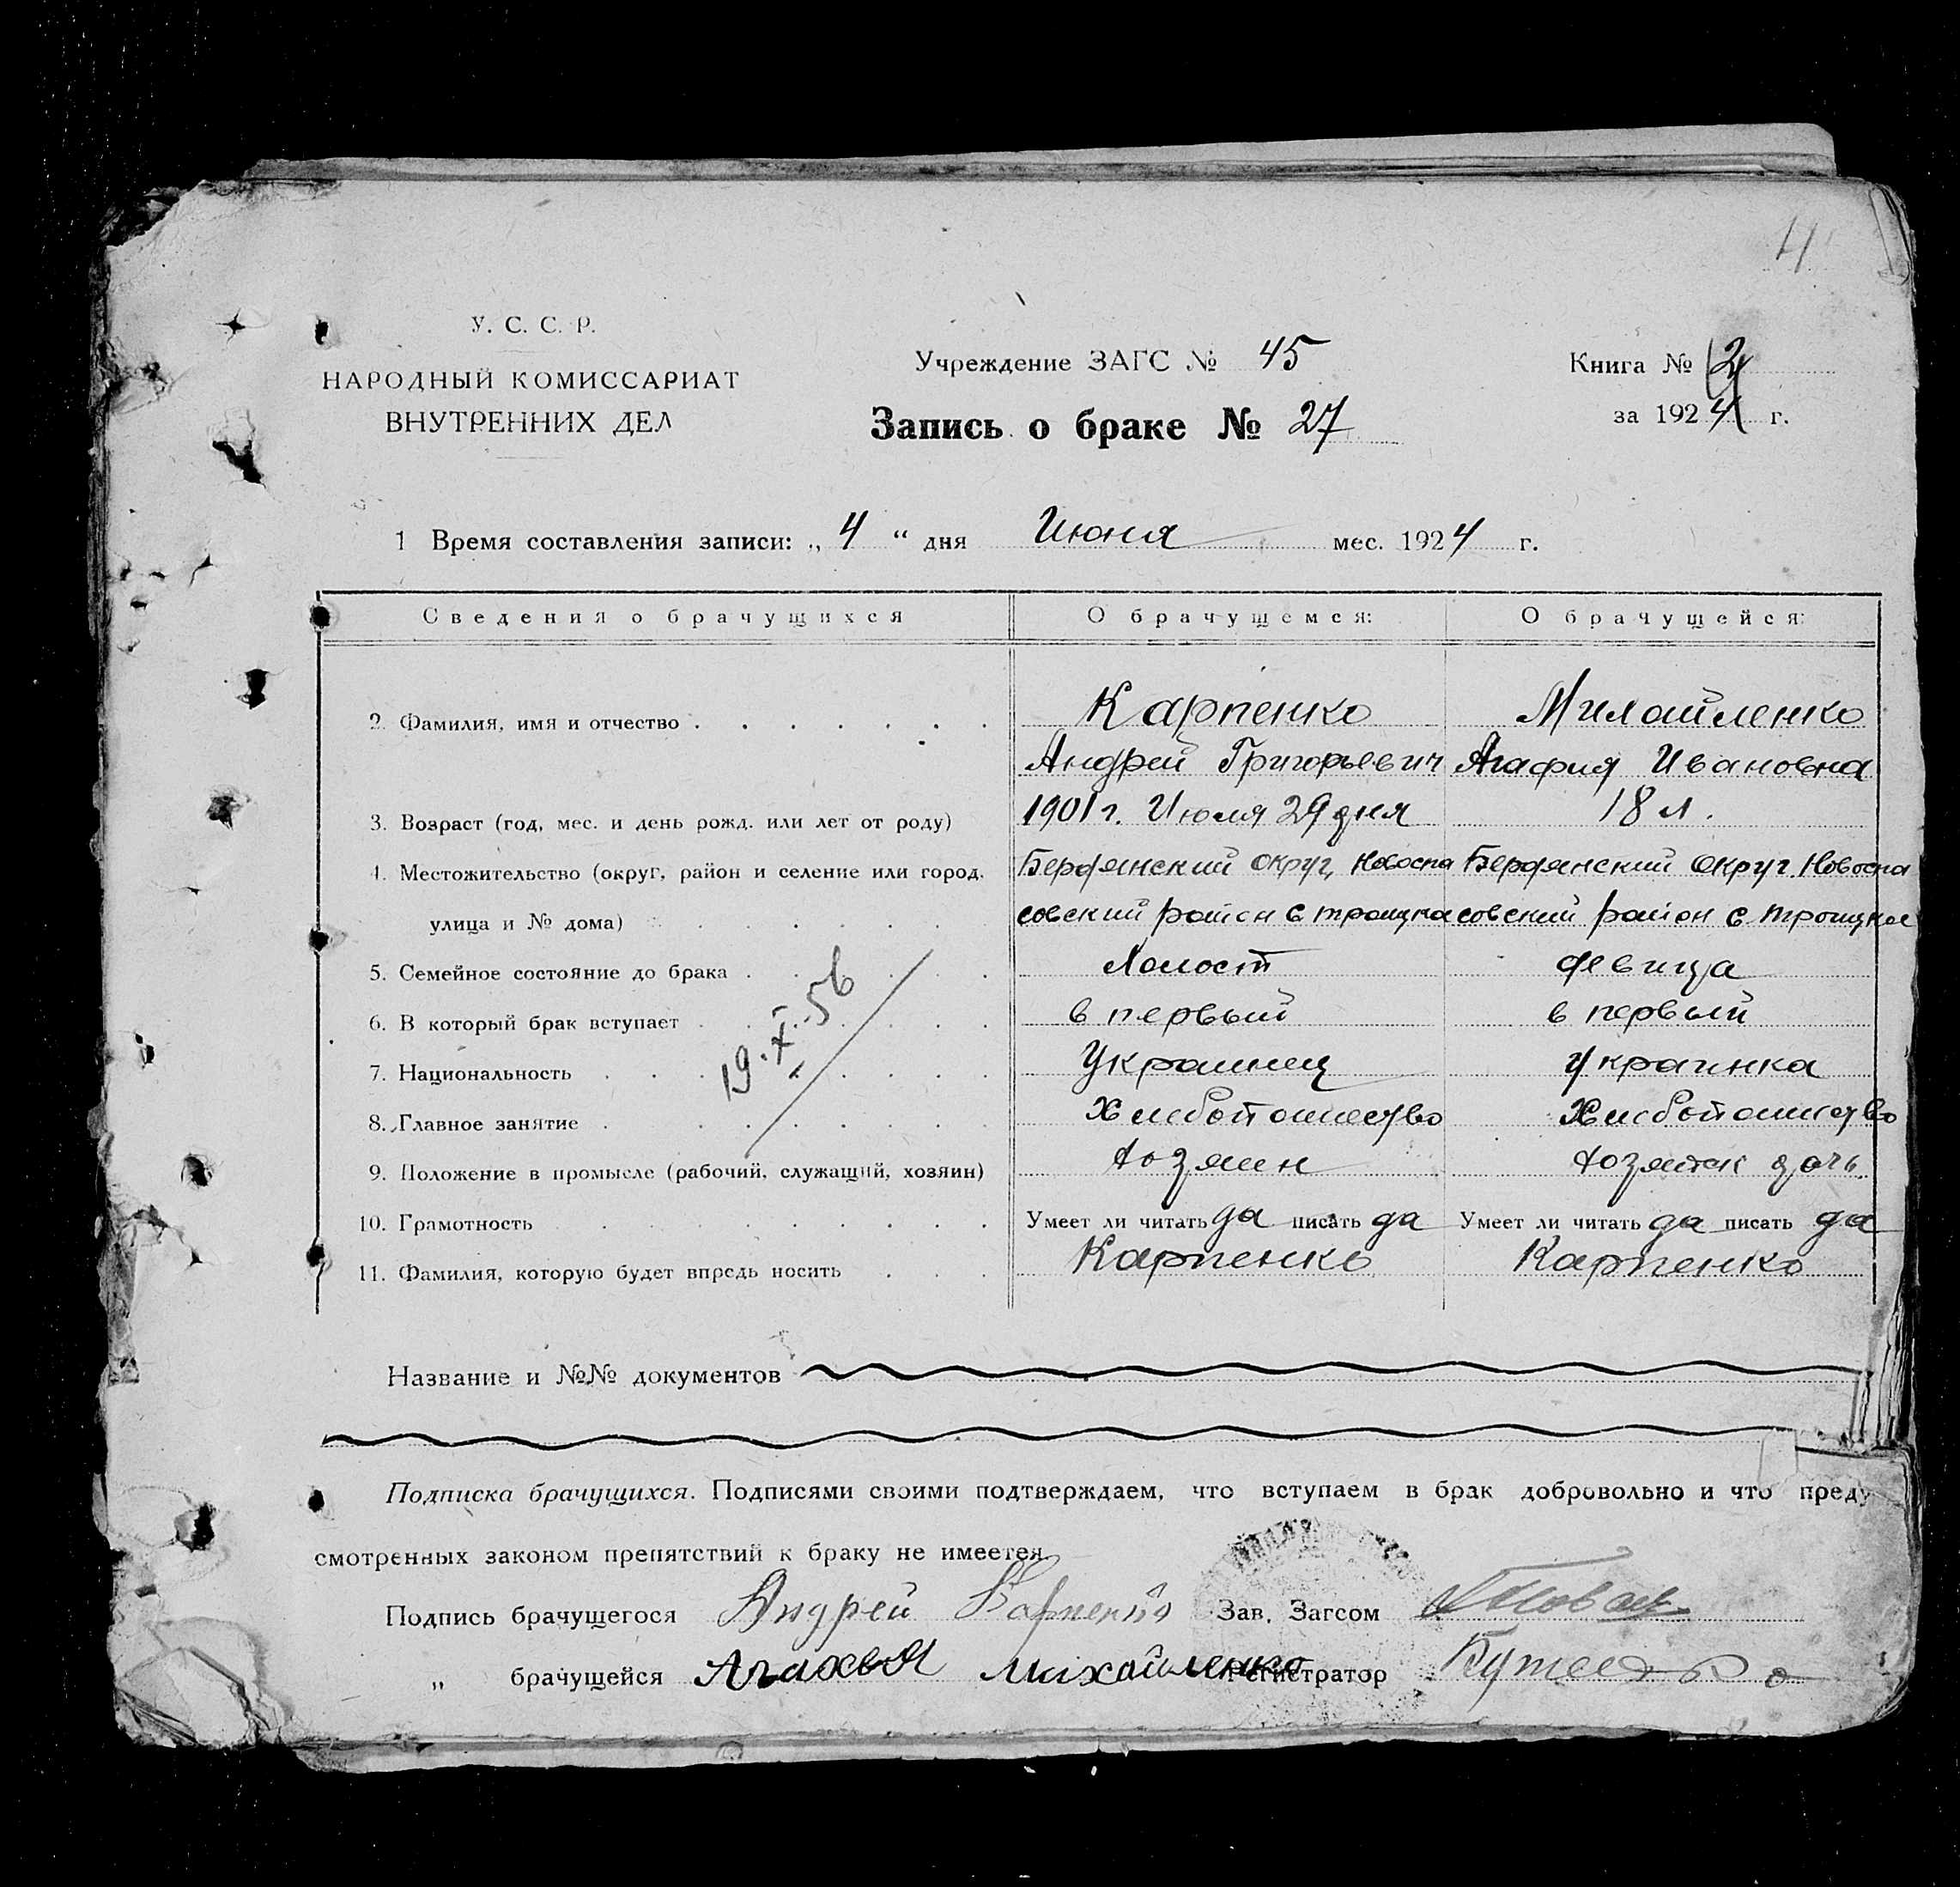 4
У. С. С. Р.
НАРОДНЫЙ КОМИССАРИАТ
ВНУТРЕННИХ ДЕЛ
Учреждение ЗАГС № 45
Запись о браке № 27
Книга № 2
за 1924 г.
1 Время составления записи: „ 4 “ дня Июня мес. 1924 г.
Сведения о брачущихся О брачущемся: О брачущейся:
2. Фамилия, имя и отчество Карпенко Михайленко
Андрей Григорьевич Агафия Ивановна
3. Возраст (год, мес. и день рожд. или лет от роду) 1901 г. Июля 29 дня 18 л.
4. Местожительство (округ, район и селение или город, Бердянский округ, Новоспа Бердянский округ. Новоспа
улица и № дома) совский район с троицкое совский район с троицкое
5. Семейное состояние до брака Холост девица
6. В который брак вступает в первый в первый
7. Национальность Украинец украинка
8. Главное занятие Хлебопашество Хлебопашество
9. Положение в промысле (рабочий, служащий, хозяин) хозяин дочь
10. Грамотность Умеет ли читать да писать да Умеет ли читать да писать да
11. Фамилия, которую будет впредь носить Карпенко Карпенко
19.X.56
Название и №№ документов
Подписка брачущихся. Подписями своими подтверждаем, что вступаем в брак добровольно и что преду
смотренных законом препятствий к браку не имеется.
Подпись брачущегося Андрей Карпенко Зав. Загсом
„ брачущейся Агахвя Михайленко Регистратор